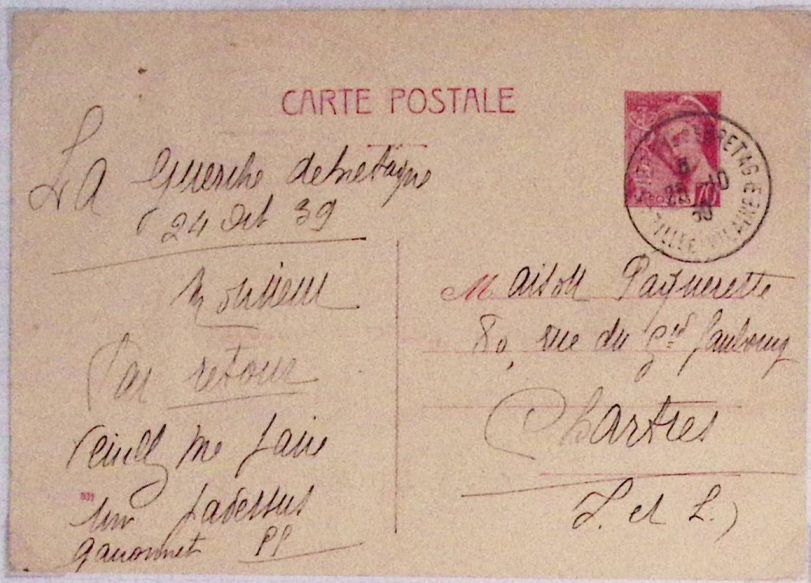 CARTE POSTALE
La Guerche de Bretagne
24 Oct 39
Monsieur
Par retour
Veuillez me faire
un pardessus
garçonnet PP
Maison Paquerette
80, rue du Gd faubourg
Chartres
(E. et L.)
ILLE-ET-VILAINE